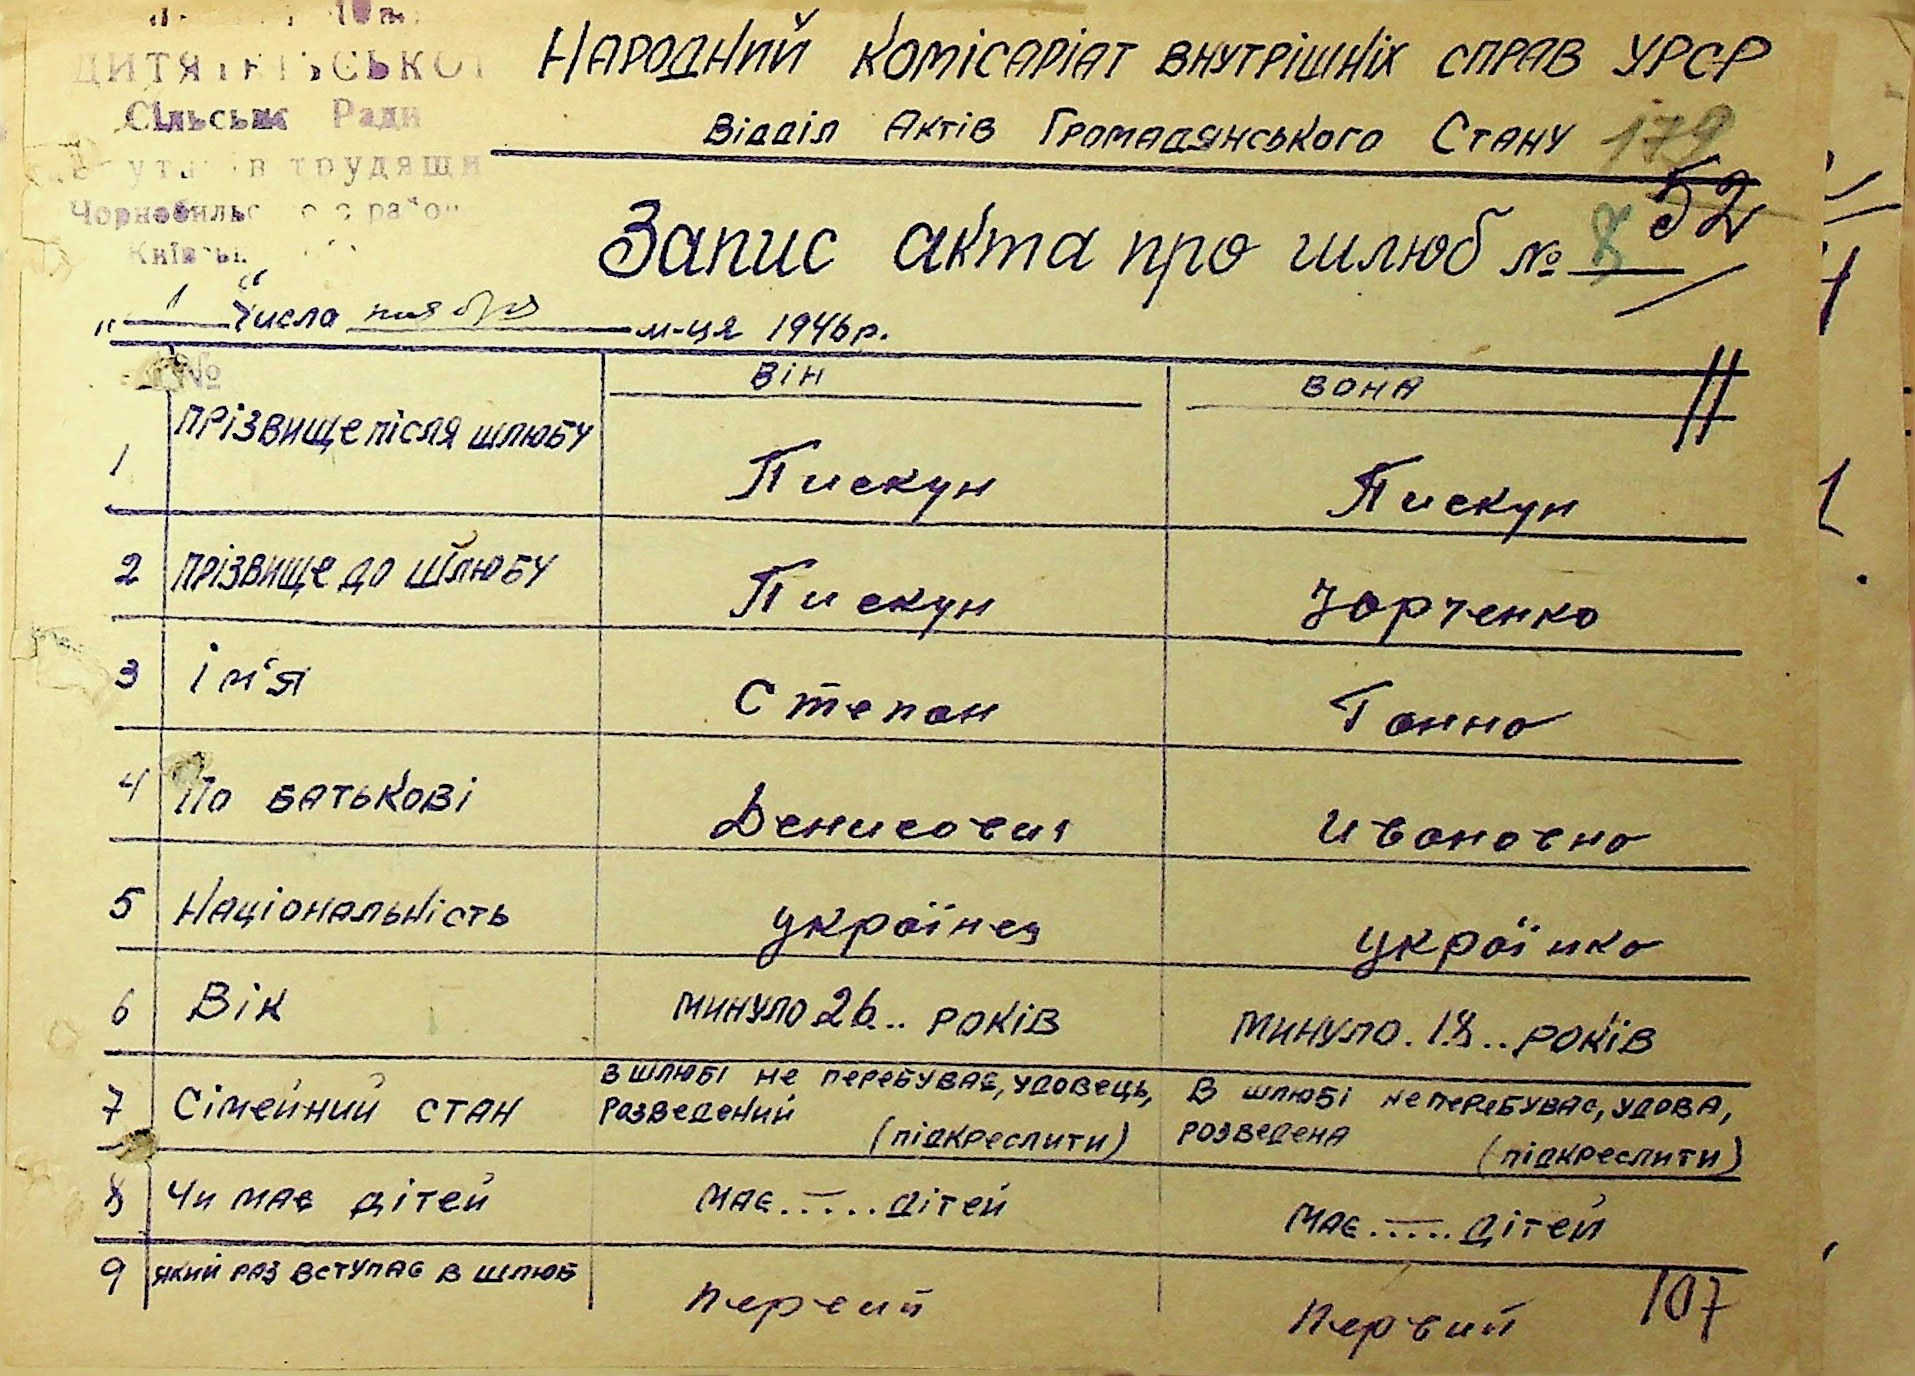 Сільське Ради
трудящи
НАРОДНИЙ КОМІСАРІАТ ВНУТРІШНІХ СПРАВ УРСР
ВІДДІЛ АКТІВ ГРОМАДЯНСЬКОГО СТАНУ
179
52
Запис акта про шлюб № 8
"1" Числа ноября м-ця 1946р.
№ ВІН ВОНА
1 ПРІЗВИЩЕ ПІСЛЯ ШЛЮБУ Пискун Пискун
2 ПРІЗВИЩЕ ДО ШЛЮБУ Пискун Юрченко
3 ІМ'Я Степан Ганна
4 ПО БАТЬКОВІ Денисович Ивановна
5 НАЦІОНАЛЬНІСТЬ українец українка
6 ВІК МИНУЛО 26.. РОКІВ МИНУЛО.18..РОКІВ
7 СІМЕЙНИЙ СТАН В ШЛЮБІ НЕ ПЕРЕБУВАЄ, УДОВЕЦЬ, РОЗВЕДЕНИЙ (ПІДКРЕСЛИТИ) В ШЛЮБІ НЕ ПЕРЕБУВАЄ, УДОВА, РОЗВЕДЕНА (ПІДКРЕСЛИТИ)
8 ЧИ МАЄ ДІТЕЙ МАЄ..—...ДІТЕЙ МАЄ..—...ДІТЕЙ
9 ЯКИЙ РАЗ ВСТУПАЄ В ШЛЮБ первий первий
107